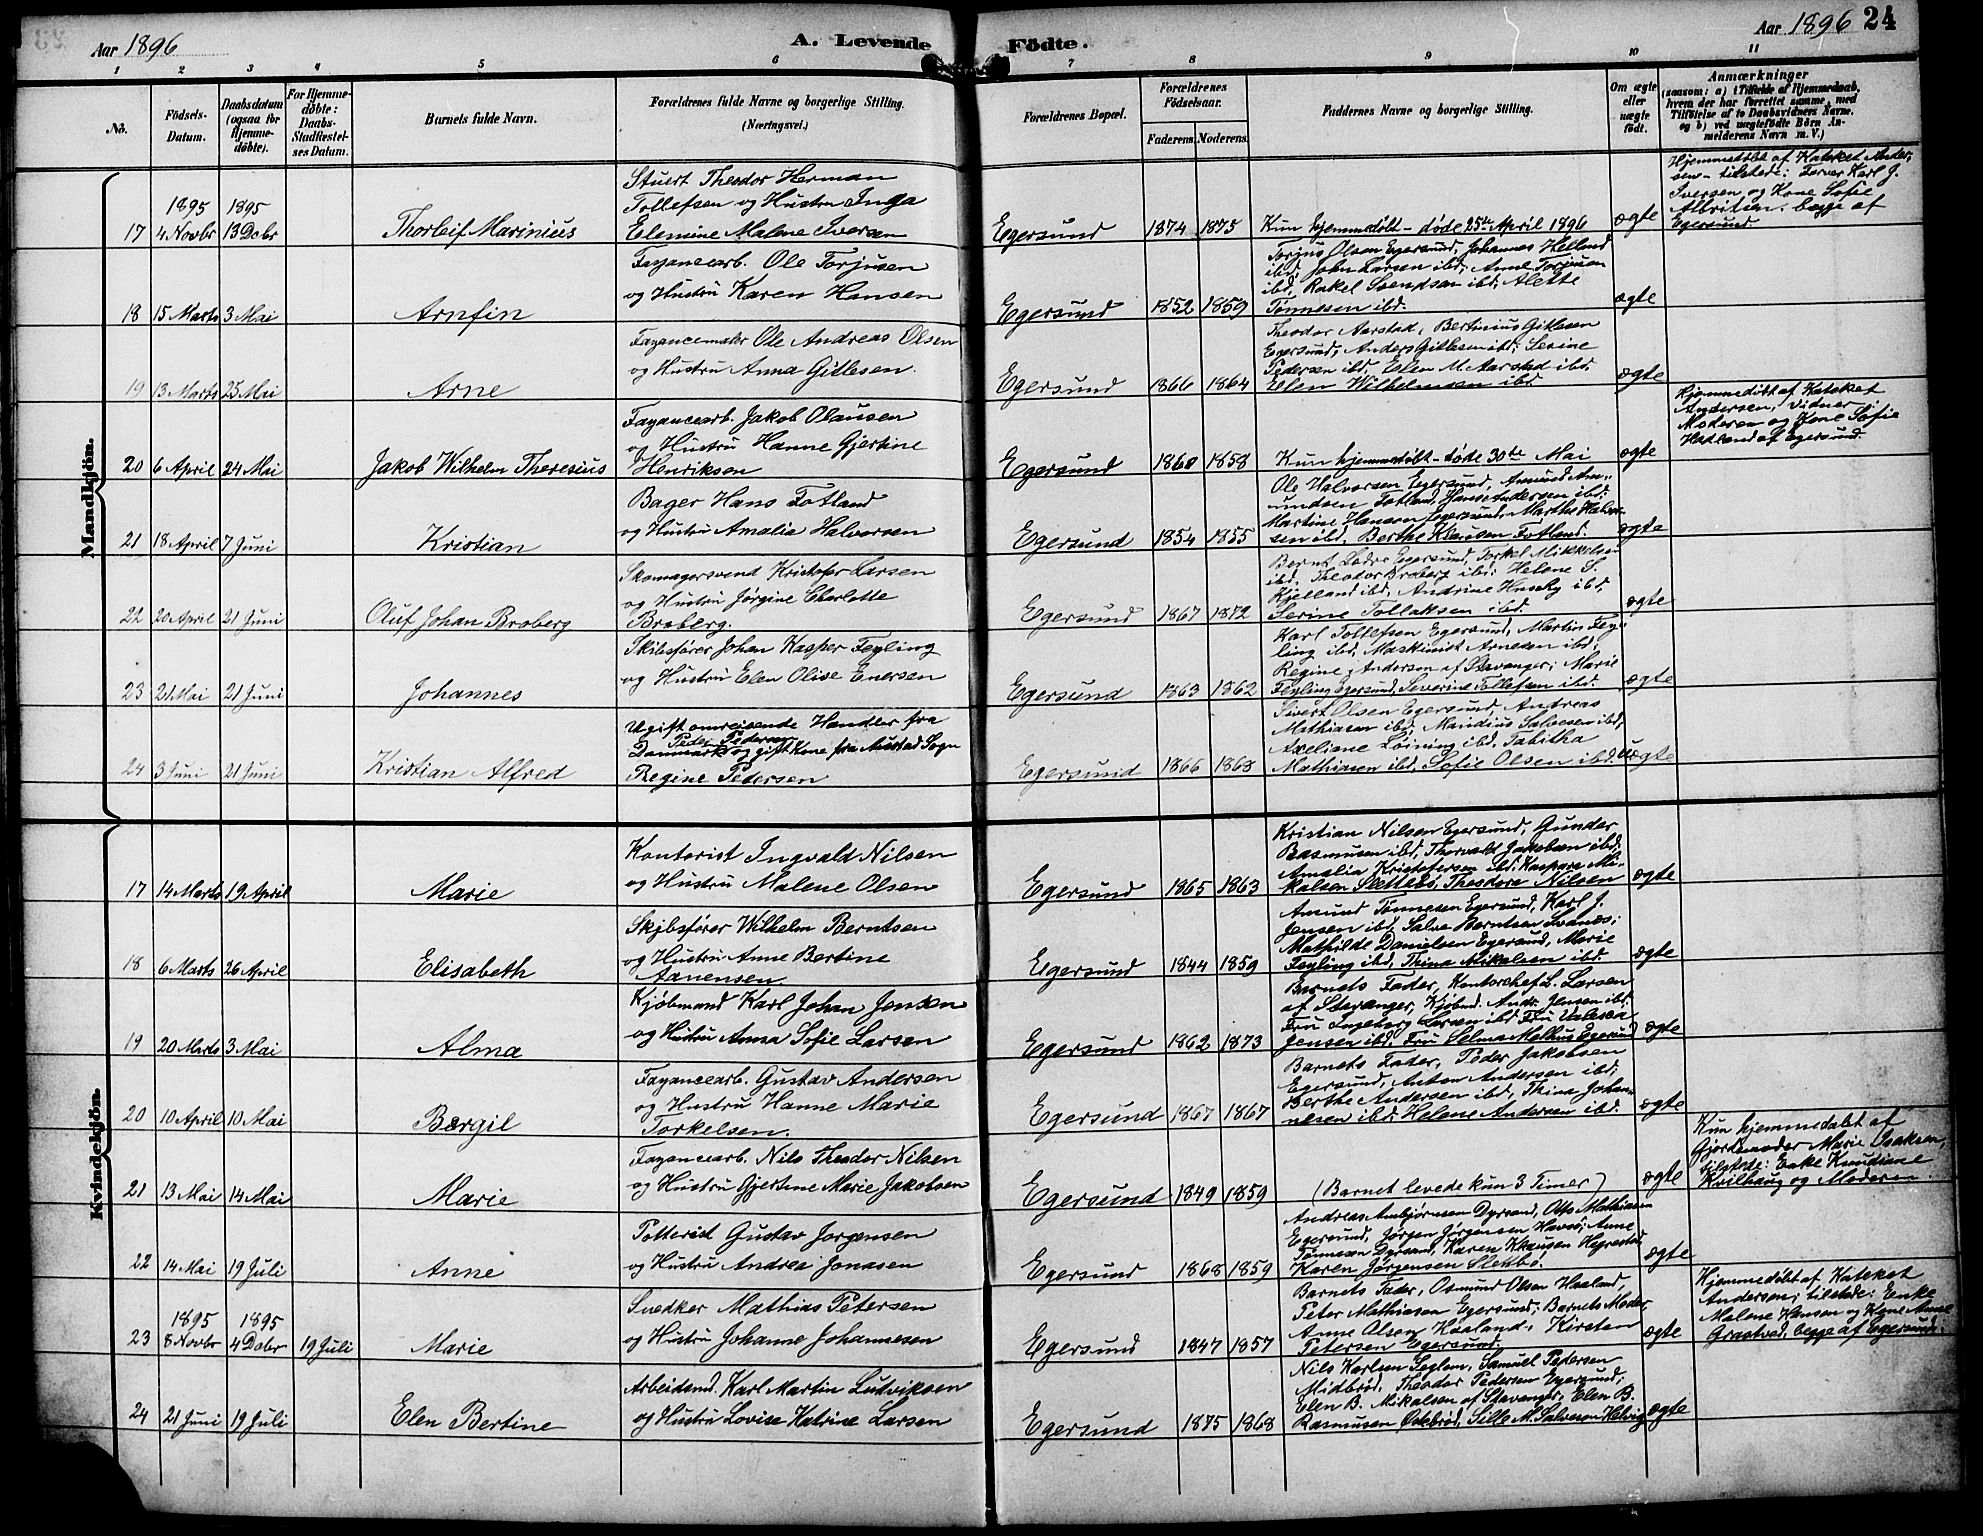 Aar 1896
A. Levende Födte.
Aar 1896 24
1 2 3 4 5 6 7 8 9 10 11
No.
Födsels-Datum.
Daabsdatum (ogsaa for Hjemme-døbte).
For Hjemme-døbte: Daabs-Stadfæstel-ses Datum.
Barnets fulde Navn.
Forældrenes fulde Navne og borgerlige Stilling. (Næringsvei.)
Forældrenes Bopæl.
Forældrenes Födselsaar.
Faderens. Moderens.
Faddernes Navne og borgerlige Stilling.
Om ægte eller uægte født.
Anmærkninger
(saasom: a) i Tilfælde af Hjemmedaab,
hvem der har forrettet samme, med
Tilføielse af to Daabsvidners Navne,
og b) ved uægtefødte Börn An-
melderens Navn m. V.)
Mandkjön.
17 1895 4 Novbr 1895 13 Debr Thorleif Marinius
Stuert Theodor Herman
Tollefsen og Hustru Inga
Elemine Malene Iversen
Egersund 1874 1875 Kun hjemmedøbt - døde 25de April 1896 ægte
Hjemmedøbt af Kateket Ander-
sen - tilstede: Farver Karl J.
Iversen og Kone Sofie
Albritsen, begge af
Egersund.
18 15 Marts 3 Mai Arnfin
Fayancearb. Ole Torjusen
og Hustru Karen Hansen
Egersund 1852 1859
Torjus Olsen Egersund, Johannes Helland
ibd, John Larsen ibd; Anne Torjusen
ibd, Rakel Svendsen ibd, Alette
Tønnesen ibd.
ægte
19 13 Marts 25 Mai Arne
Fayancemaler Ole Andreas Olsen
og Hustru Anna Gitlesen.
Egersund 1866 1864
Theodor Aarstad, Bertinius Gitlesen
Egersund, Anders Gitlesen ibd; Serine
Pedersen ibd, Elen M. Aarstad ibd.
Elen Wilhelmsen ibd
ægte
20 6 April 24 Mai Jakob Wilhelm Theresius
Fayancearb. Jakob Olausen
og Hustru Hanne Gjertine
Henriksen
Egersund 1860 1858 Kun hjemmedøbt - døde 30te Mai ægte
Hjemmedøbt af Kateket
Andersen, Vidner:
Moderen og Kone Sofie
Hadland af Egersund.
21 18 April 7 Juni Kristian
Bager Hans Fotland
og Hustru Amalia Halvorsen
Egersund 1854 1855
Ole Halvorsen Egersund, Amund Am-
undsen Fotland, Hans Andersen ibd;
Martine Hansen Egersund, Marthe Halvor-
sen ibd, Berthe Klausen Fotland.
ægte
22 20 April 21 Juni Oluf Johan Broberg
Skomagersvend Kristofer Larsen
og Hustru Jørgine Charlotte
Broberg.
Egersund 1867 1872
Bernt Lodre Egersund, Torkel Mikkelsen
ibd, Theodor Broberg ibd; Helene S.
Kjelland ibd, Andrine Husby ibd,
Serine Tollaksen ibd.
ægte
23 21 Mai 21 Juni Johannes
Skibsfører Johan Kasper Feyling
og Hustru Elen Olise Enersen
Egersund 1863 1862
Karl Tollefsen Egersund, Martin Fey-
ling ibd, Maskinist Arnesen ibd,
Regine Andersen af Stavanger; Marie
Feyling Egersund, Severine Tollefsen ibd.
ægte
24 3 Juni 21 Juni Kristian Alfred
Ugift omreisende Handler fra
Peder Pedersen
Danmark og gift Kone fra Austad Sogn
Regine Pedersen
Egersund 1866 1868
Sivert Olsen Egersund, Andreas
Mathiasen ibd, Mandius Salvesen ibd,
Axeliane Løining ibd. Tabitha
Mathiasen ibd, Sofie Olsen ibd.
uægte
Kvindekjön.
17 14 Marts 19 April Marie
Kontorist Ingvald Nilsen
og Hustru Malene Olsen
Egersund 1865 1863
Kristian Nilsen Egersund, Gunder
Rasmusen ibd, Thorvald Jakobsen ibd;
Amalia Kristofersen ibd, Kaspara Mi-
kalsen Slettebø, Theodora Nilsen
ægte
18 6 Marts 26 April Elisabeth
Skibsfører Wilhelm Berntsen
og Hustru Anne Bertine
Aanensen.
Egersund 1844 1859
Amund Tønnesen Egersund, Karl J.
Jensen ibd, Salve Berntsen Svanes;
Mathilde Danielsen Egersund, Marie
Feyling ibd, Thina Mikalsen ibd.
ægte
19 20 Marts 3 Mai Alma
Kjøbmand Karl Johan Jensen
og Hustru Anna Sofie Larsen
Egersund 1862 1873
Barnets Fader, Kontorchef L. Larsen
af Stavanger, Kjøbmd. Andr. Jensen ibd;
Fru Ingeborg Larsen ibd Fru Valesca
Jensen ibd, Fru Selma Melhus Egersund
ægte
20 10 April 10 Mai Børgil
Fayancearb. Gustav Andersen
og Hustru Hanne Marie
Torkelsen.
Egersund 1867 1867
Barnets Fader, Peder Jakobsen
Egersund, Anton Andersen ibd;
Berthe Andersen ibd, Thina Johan-
nesen ibd, Helene Andersen ibd.
ægte
21 13 Mai 14 Mai Marie
Fayancearb. Nils Theodor Nilsen
og Hustru Gjertine Marie Jakobsen
Egersund 1849 1859 (Barnet levede kun 3 Timer) ægte
Kun hjemmedøbt af
Gjordemoder Marie Isaksen,
tilstede: Enke Knudiane
Kvilhaug og Moderen.
22 14 Mai 19 Juli Anne
Potterist Gustav Jørgensen
og Hustru Andrea Jonasen
Egersund 1868 1859
Andreas Ambjørnsen Dyrsand, Otto Mathiasen
Egersund, Jørgen Jørgensen Havsø; Anne
Tønnesen Dyrsand, Karen Klausen Hegrestad,
Karen Jørgensen Slettebø.
ægte
23 1895 8 Novbr 1895 4 Debr 19 Juli Marie
Snedker Mathias Petersen
og Hustru Johanne Johannesen
Egersund 1847 1857
Barnets Fader, Osmund Olsen Haaland,
Peter Mathiasen Egersund; Barnets Moder,
Anne Olsen Haaland, Kirsten
Petersen Egersund.
ægte
Hjemmedøbt af Kateket
Andersen; tilstede: Enke
Malene Hansen og Kone Anne
Grastved, begge af Egersund.
24 21 Juni 19 Juli Elen Bertine
Arbeidsmd. Karl Martin Ludviksen
og Hustru Lovise Katrine Larsen
Egersund 1875 1868
Nils Karlsen Seglem, Samuel Pedersen
Midbrød, Theodor Pedersen Egersund,
Elen B. Mikalsen af Stavanger, Elen B.
Rasmusen Øskebrød, Sille M. Salvesen Helvig
ægte